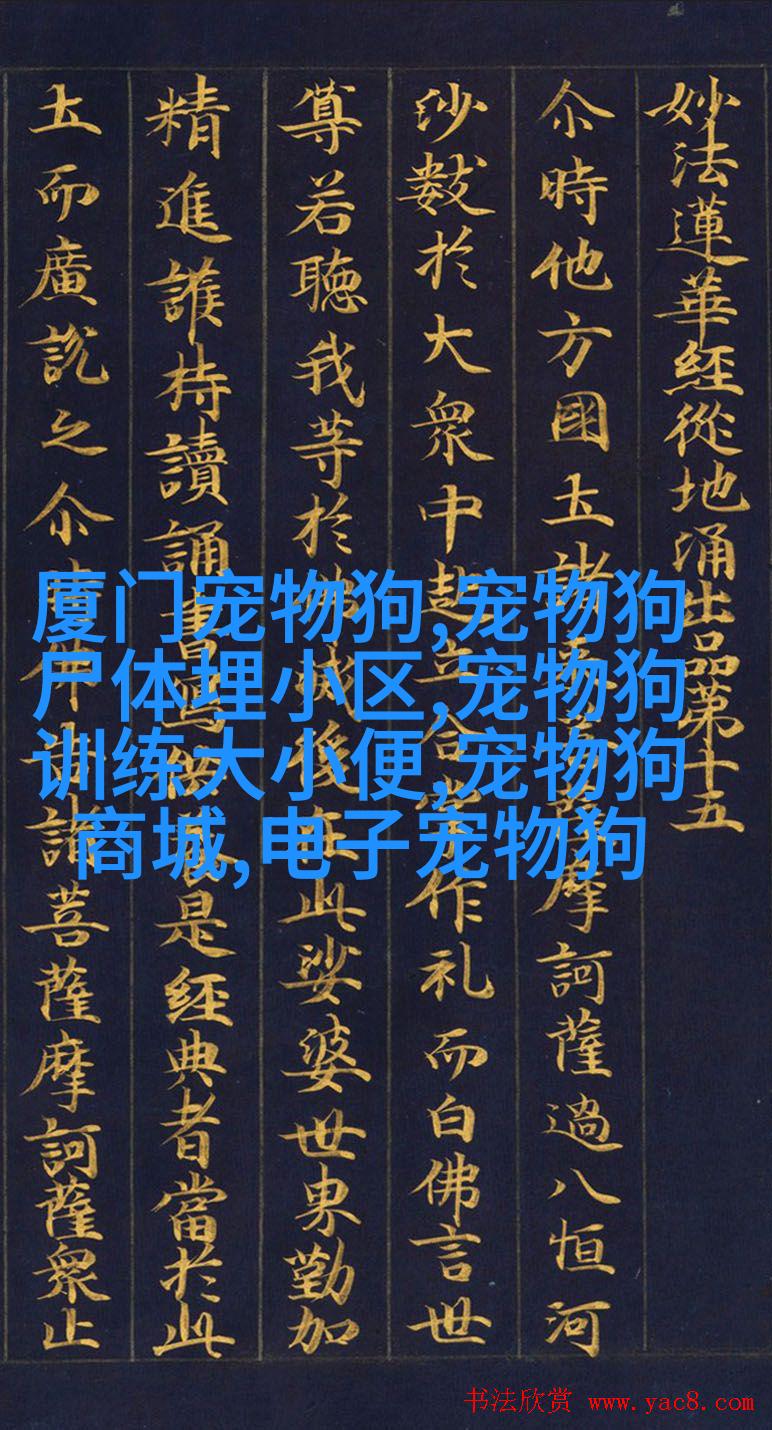 妙法蓮華經從地涌出品第十五
尒時他方國土諸來菩薩摩訶薩過八恒河
沙數於大衆中起立合掌作礼而白佛言世
尊若聽我等於佛滅後在此娑婆世界勤加
精進護持讀誦書寫供養是經典者當於此
土而廣說之尒時佛告諸菩薩摩訶薩衆止
厦门宠物狗,宠物狗
尸体埋小区,宠物狗
训练大小便,宠物狗
商城,电子宠物狗
书法欣赏 www.yac8.com